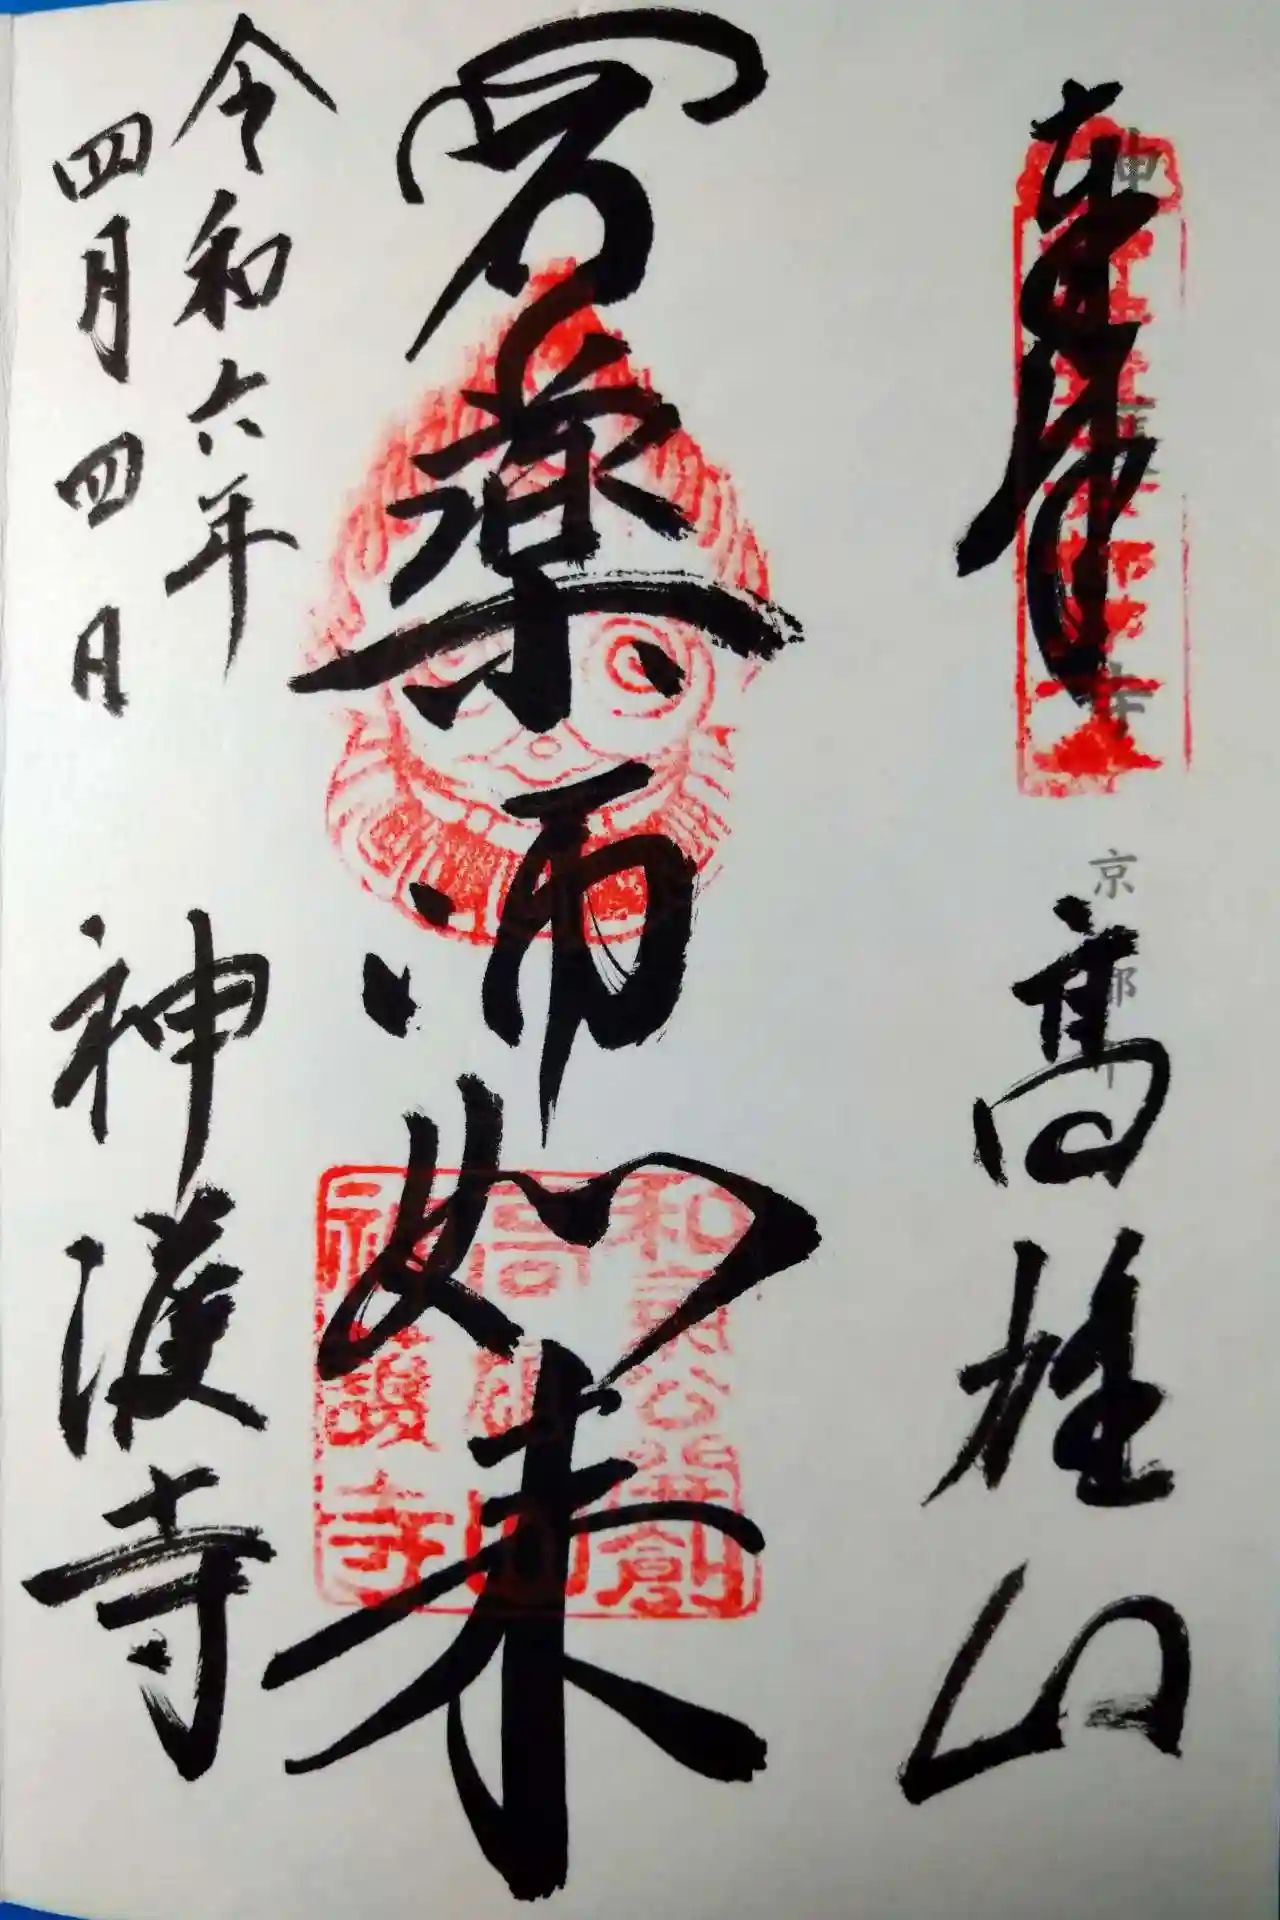 奉拝
高雄山
薬師如来
和氣公
創
高雄山
神護寺
令和六年
四月四日
神護寺